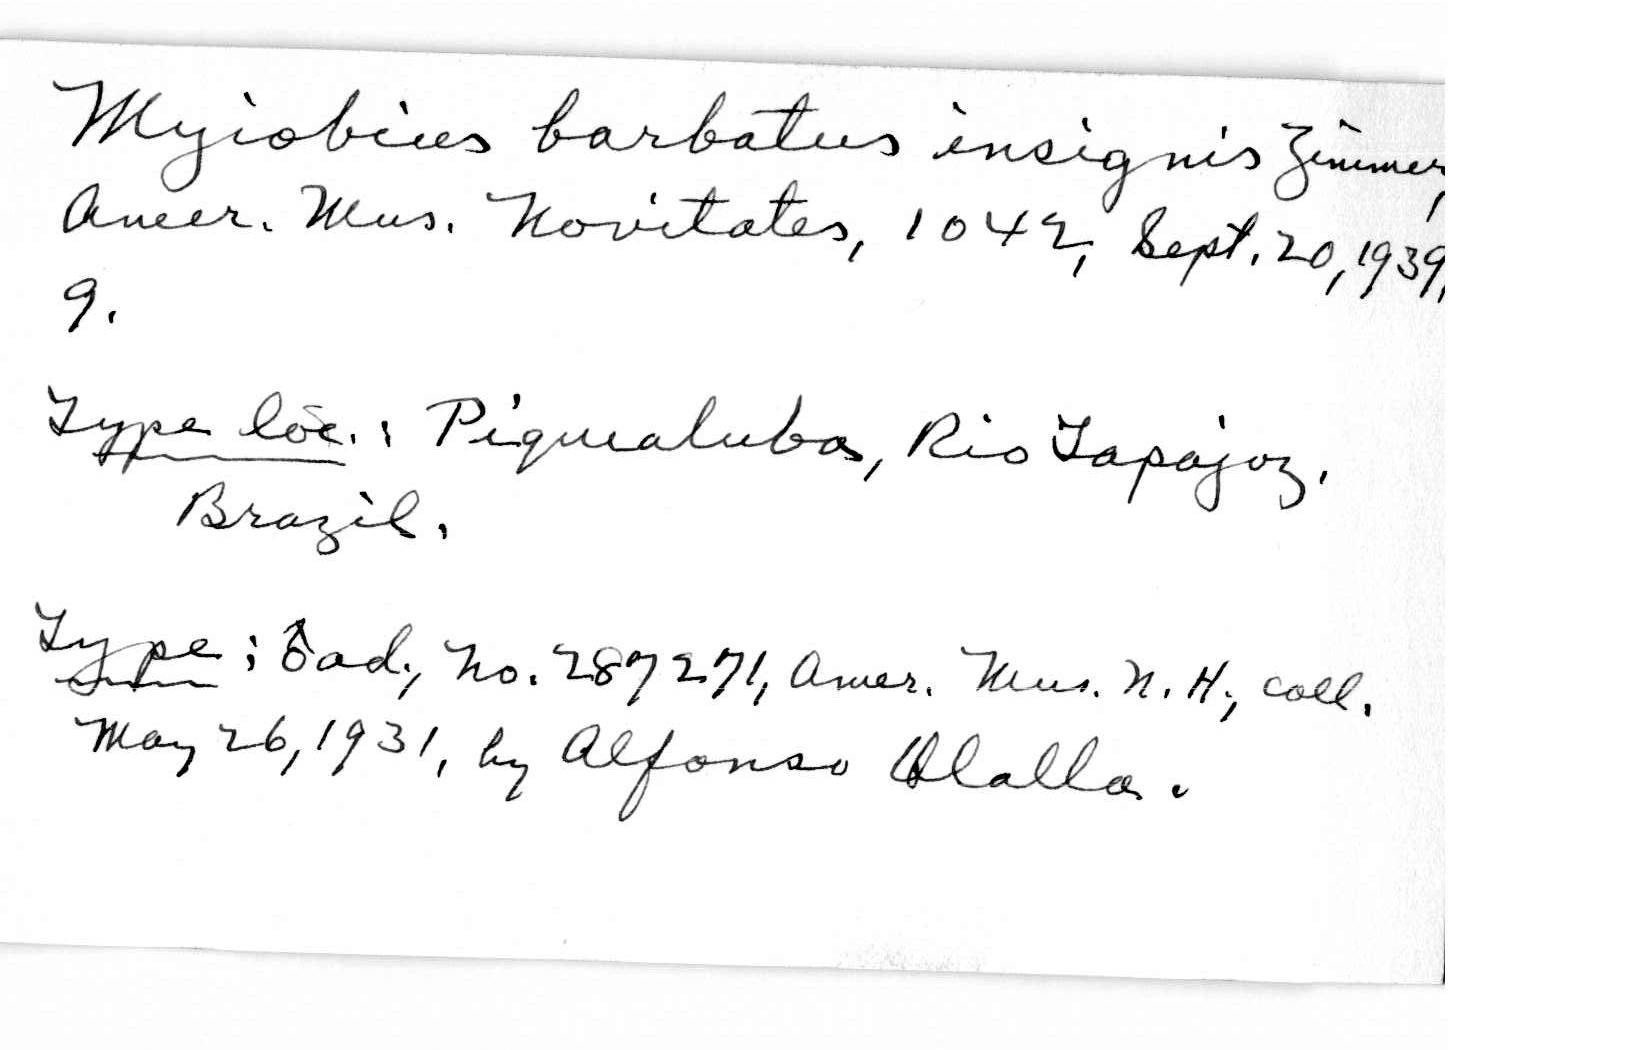 Myiobius barbatus insignis Zimmer,
Amer. Mus. Novitates, 1042, Sept. 20, 1939,
9.
Type loc.: Piquatuba, Rio Tapajoz,
Brazil.
Type: ♂ ad., No. 287271, Amer. Mus. N. H., coll.
May 26, 1931, by Alfonso Olalla.